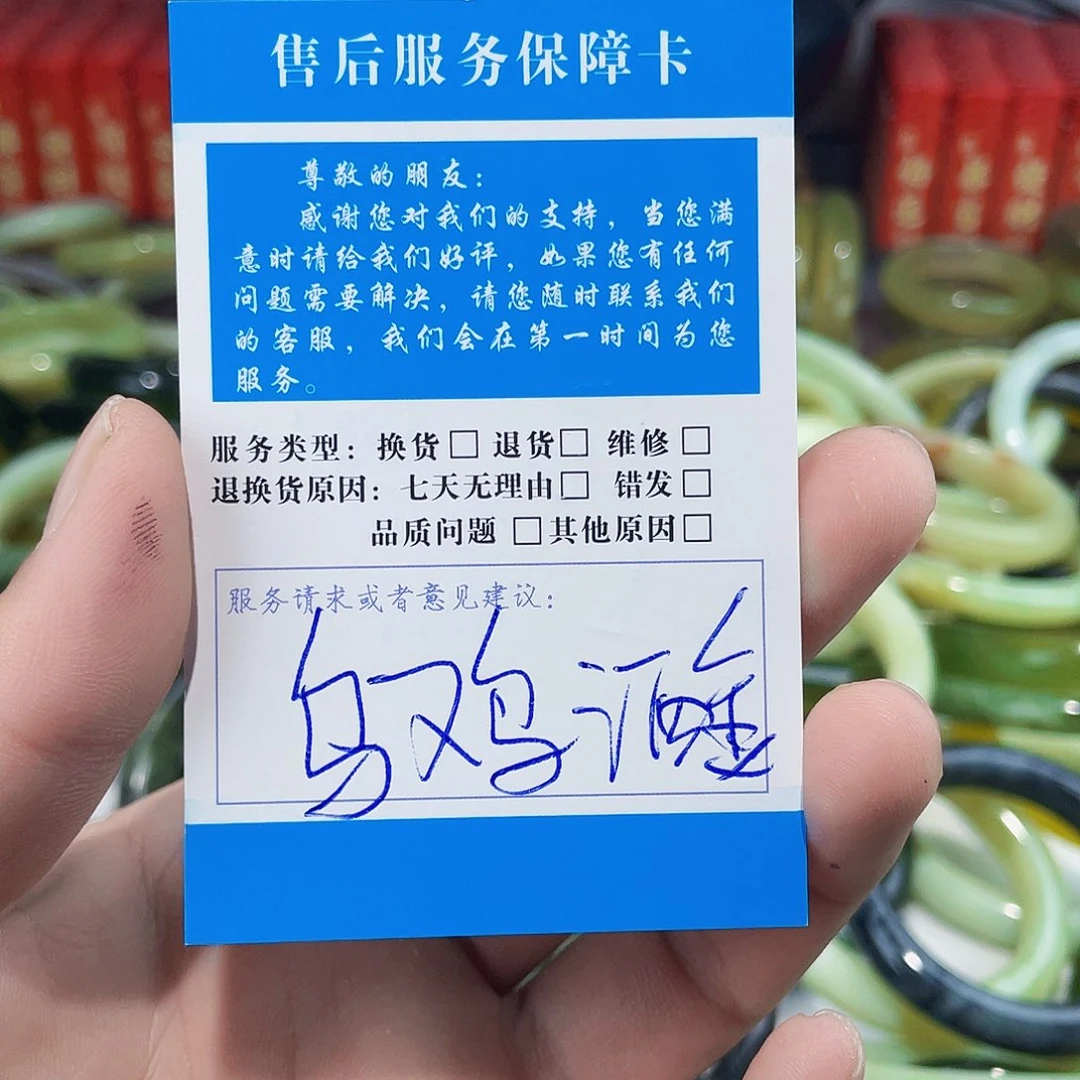 售后服务保障卡
尊敬的朋友：
感谢您对我们的支持，当您满
意时请给我们好评，如果您有任何
问题需要解决，请您随时联系我们
的客服，我们会在第一时间为您
服务。
服务类型：换货□ 退货□ 维修□
退换货原因：七天无理由□ 错发□
品质问题 □其他原因□
服务请求或者意见建议：
乌鸡